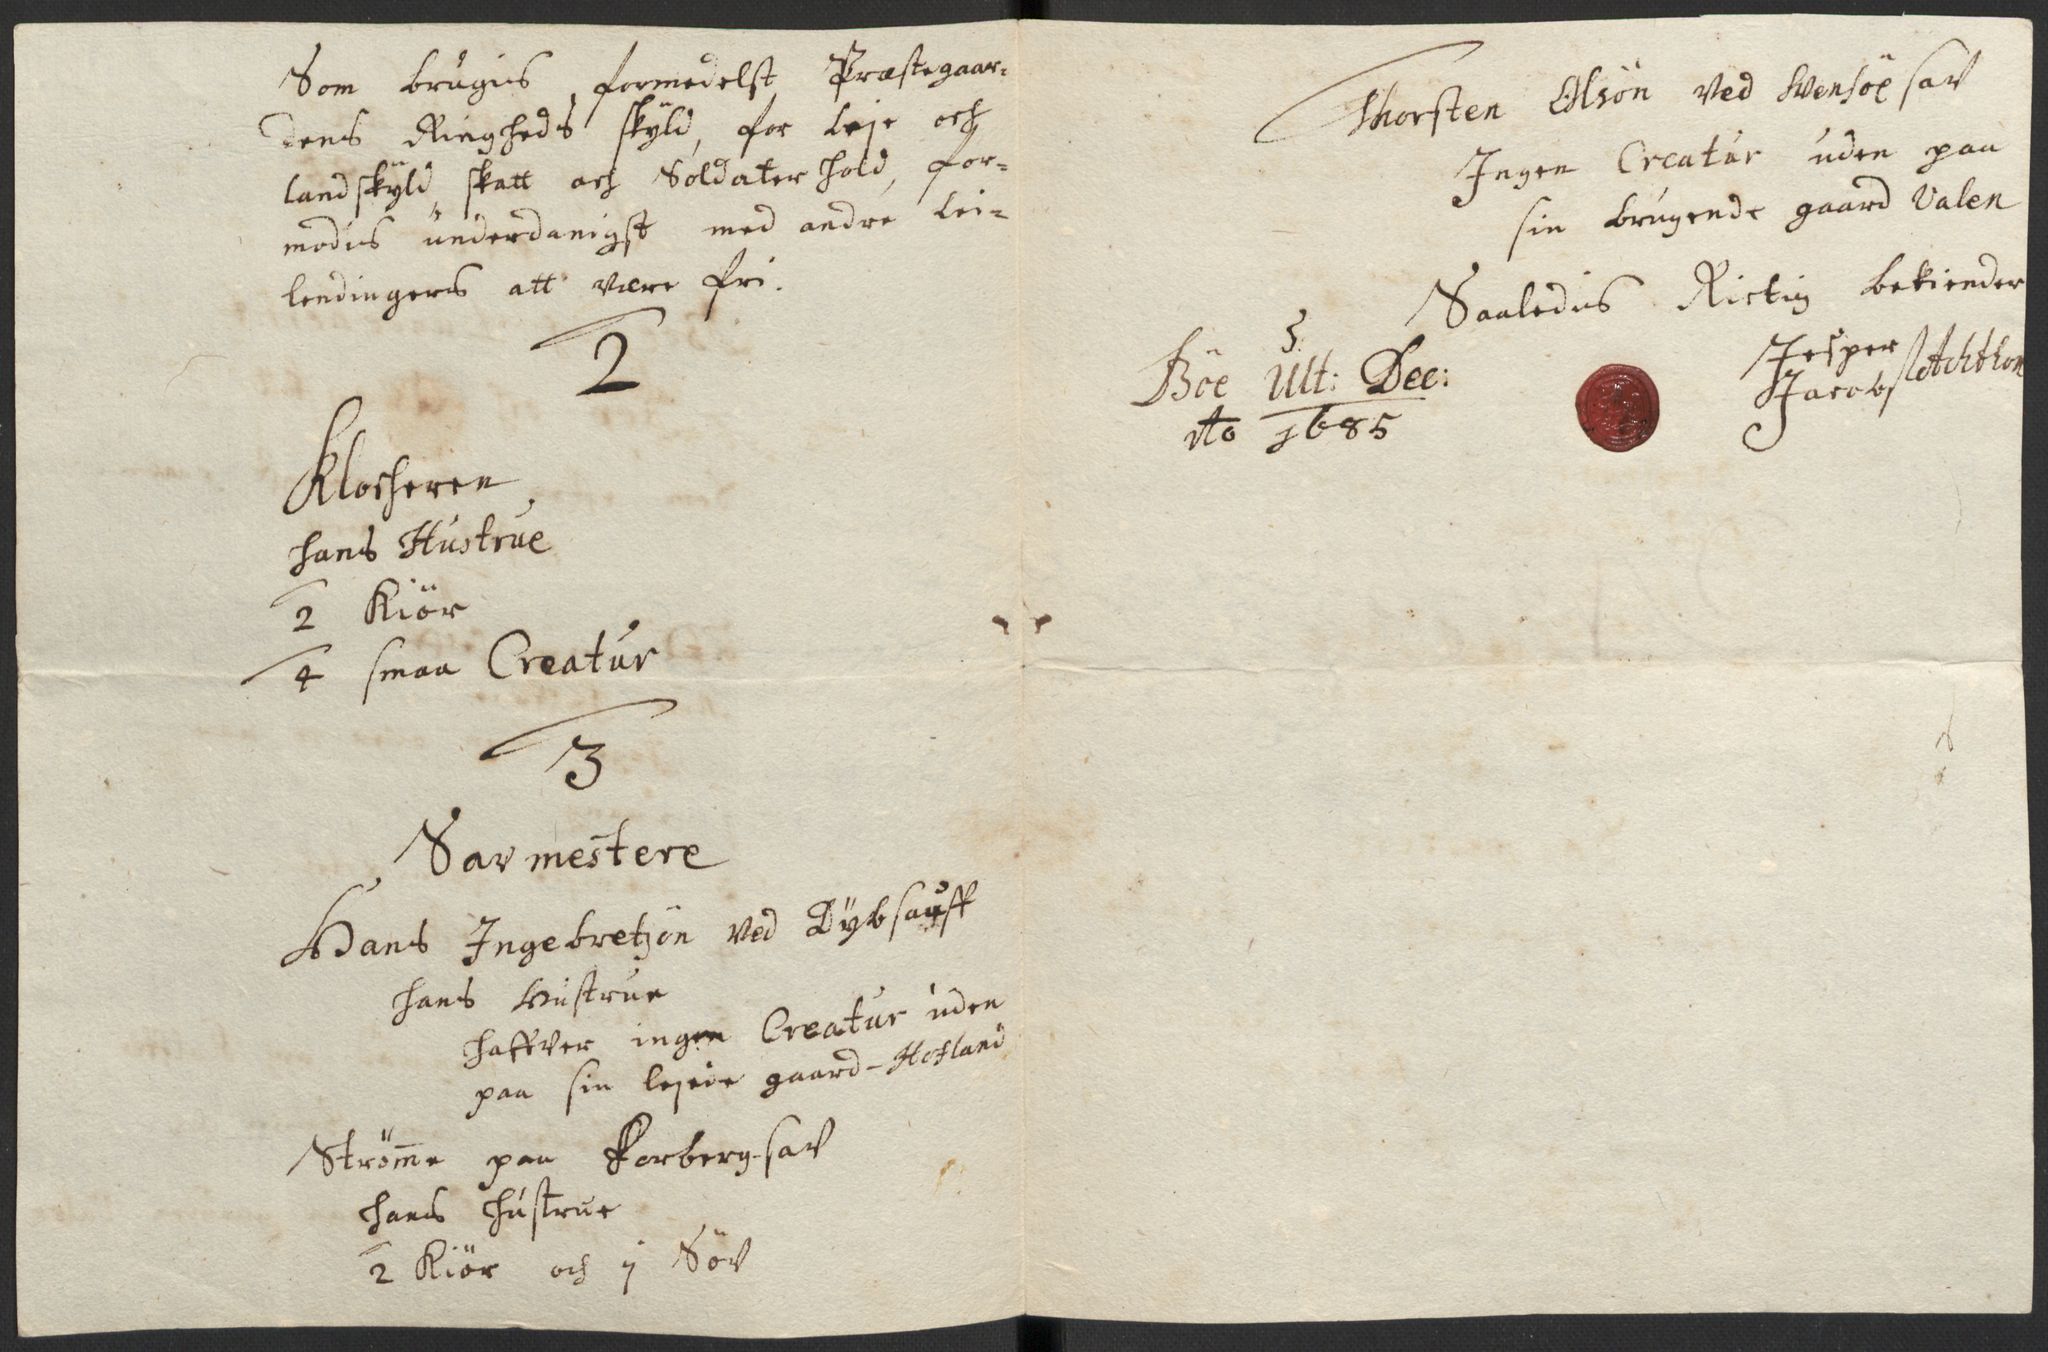 Som brugis formedelst Præstegaar-
dens Ringheds skyld, for Leje och
landskyld skatt och Soldater hold, for-
modis underdanigst med andre Lei-
lendingers att være fri.
2
Klocheren
hans Hustrue
2 Kiör
4 smaa Creatur
3
Savmestere
Hans Ingebretzön ved Dybsauff
hans Hustrue
haffver ingen Creatur uden
paa sin lejede gaard-Hofland
Strömme paa Forberg-sav
hans hustrue
2 Kiör och 7 Söv
Thorsten Olsön ved sav
Ingen Creatur uden paa
sin brugende gaard Valen
Saaledis Rictig bekiender
Böe Ult: Dec:
Ao 1685
Jesper
Jacobs Achthon